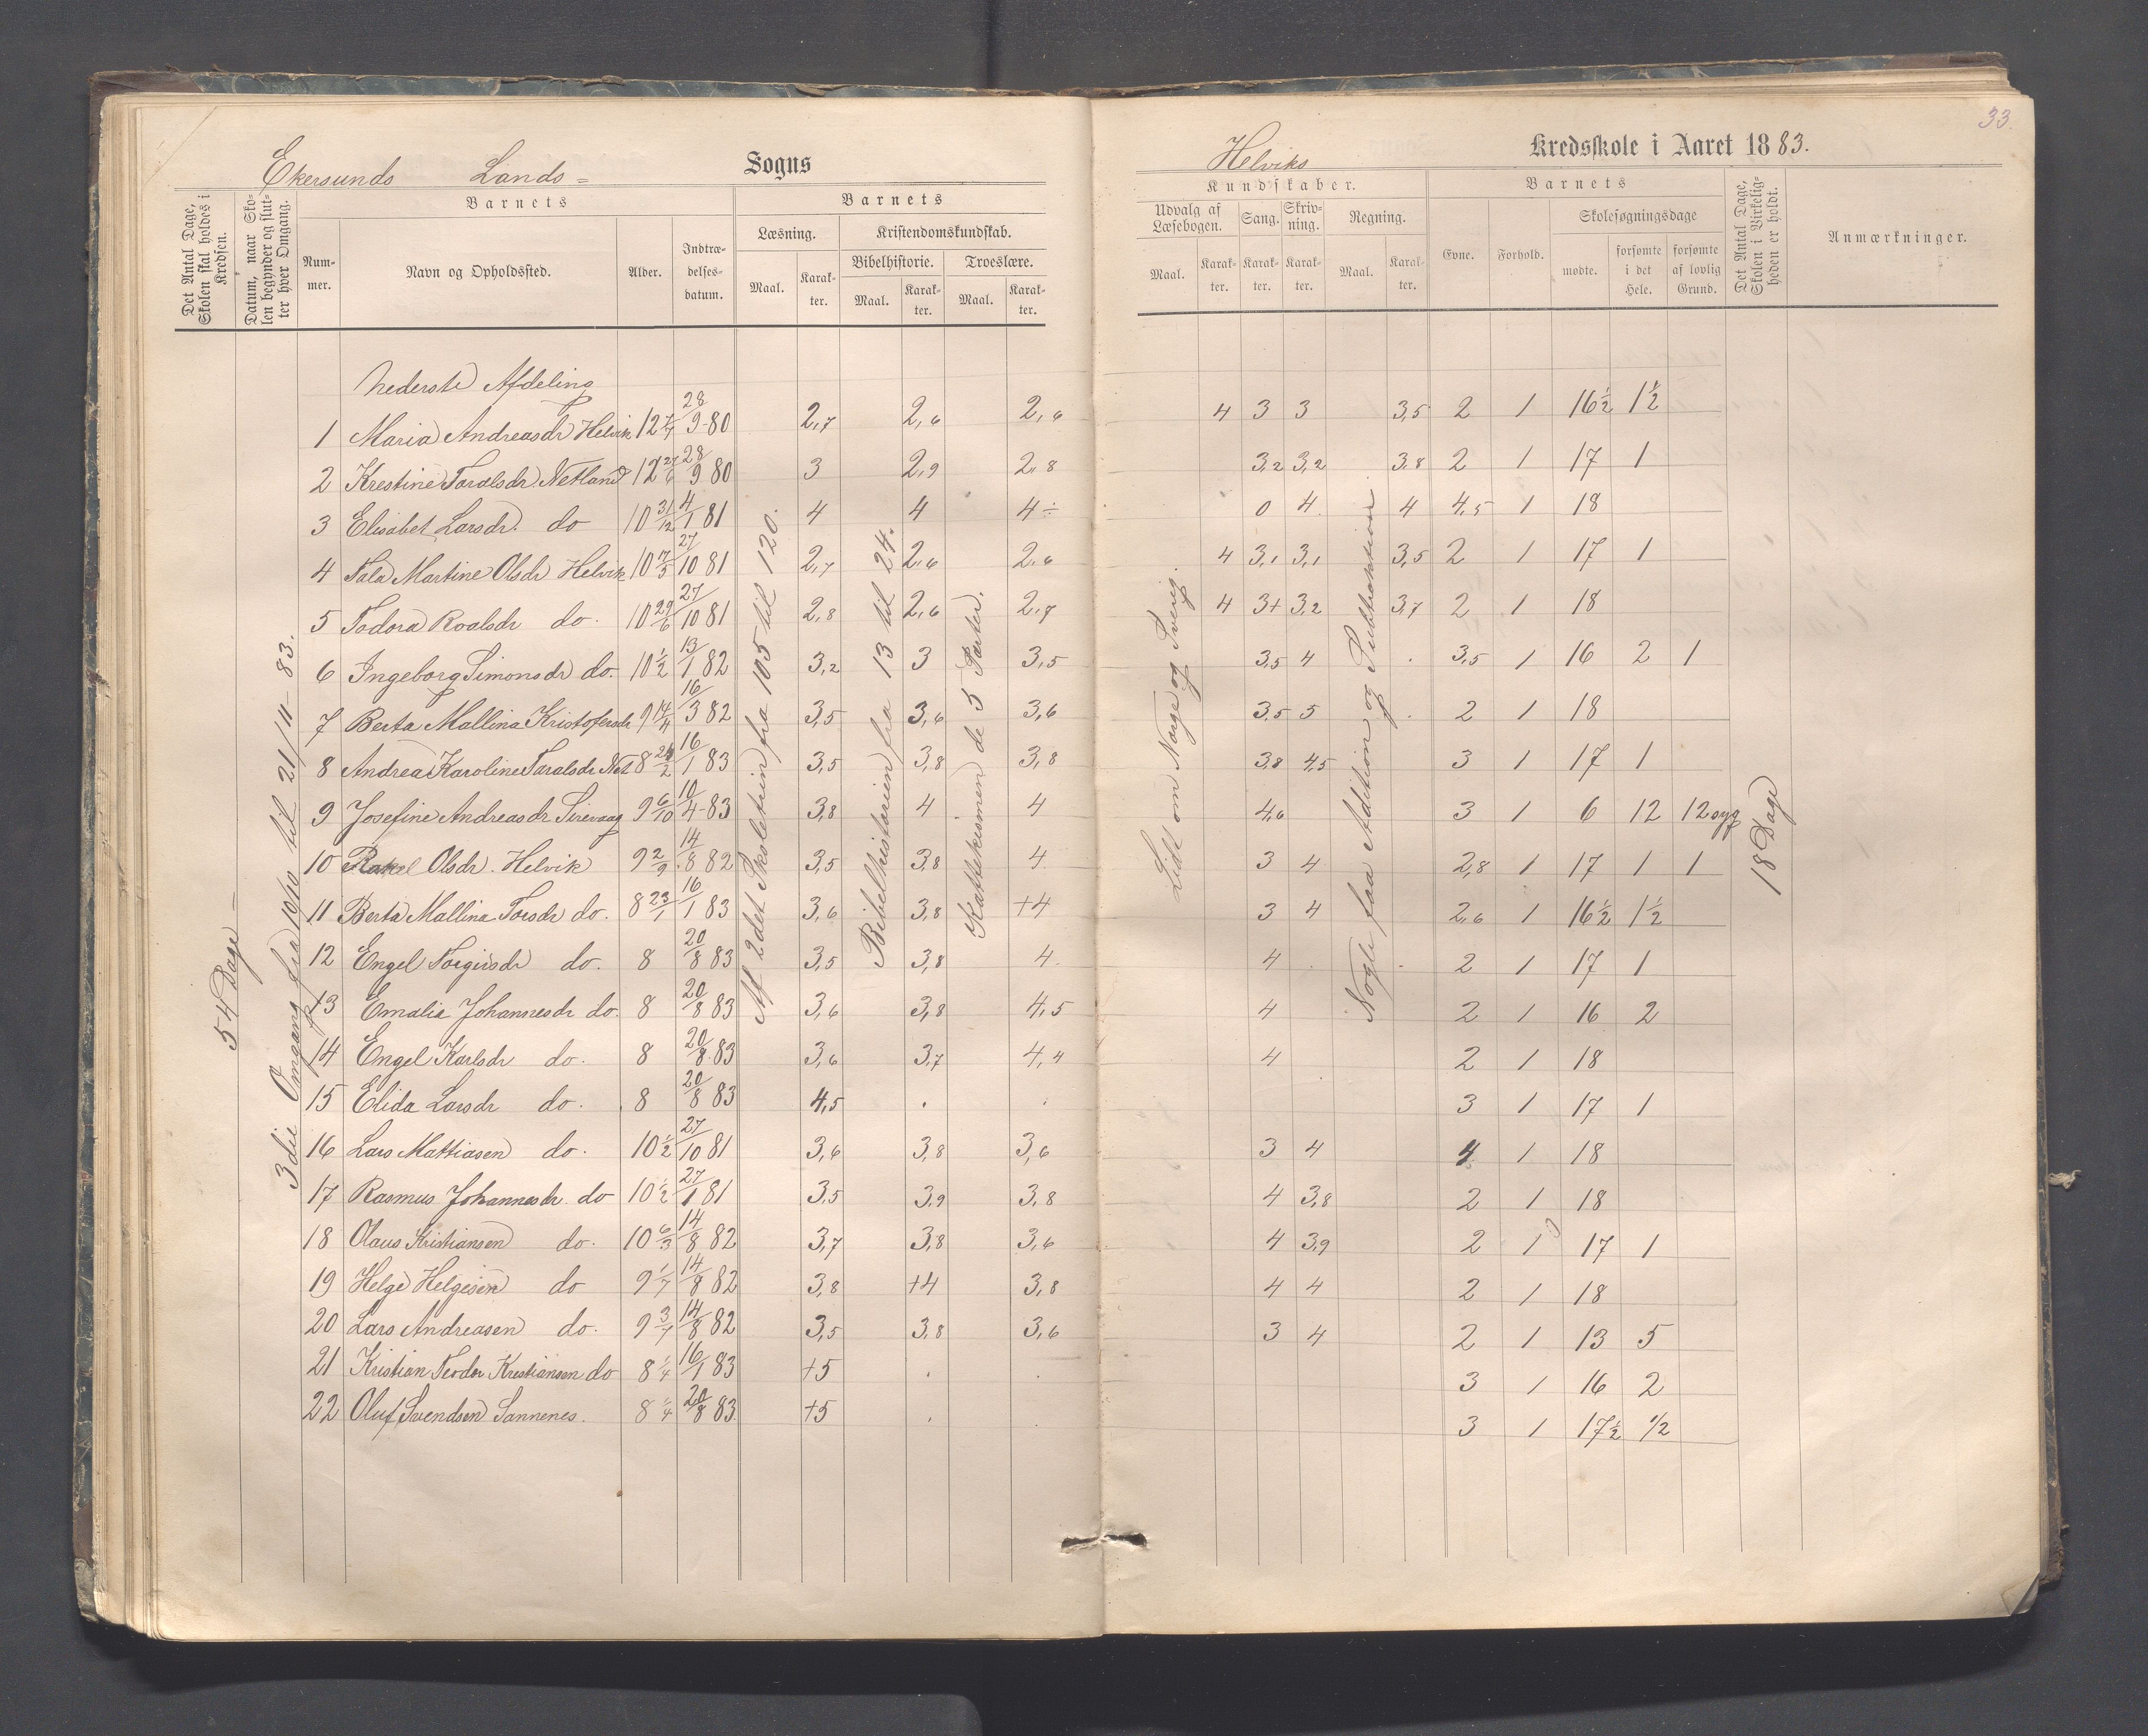 33.
Ekersunds Lands= Sogns
Helviks Kredsskole i Aaret 1883.
Det Antal Dage, Skolen skal holdes i Kredsen.
Datum, naar Skolen begynder og slutter hver Omgang.
Barnets
Nummer.
Navn og Opholdssted.
Alder.
Indtrædelsesdatum.
Barnets
Læsning.
Maal.
Karakter.
Kristendomskundskab.
Bibelhistorie.
Maal.
Karakter.
Troeslære.
Maal.
Karakter.
Kundskaber.
Udvalg af Læsebogen.
Maal.
Karakter.
Sang.
Karakter.
Skrivning.
Karakter.
Regning.
Maal.
Karakter.
Barnets
Evne.
Forhold.
Skolesøgningsdage
mødte.
forsømte i det Hele.
forsømte af lovlig Grund.
Det Antal Dage, Skolen i Virkeligheden er holdt.
Anmærkninger.
54 Dage
3die Omgang fra 10/10 til 21/11 83.
Af 2det Skoletrin fra 105 til 120.
Bibelhistorien fra 13 til 24.
Kattekismen de 5 Parter.
Lidt om Norge og Sverig.
Nogle faa Addition og Subtraktion
18 Dage
Nederste Afdeling
1 Maria Andreasdr Helvik 12 1/7 28/9-80 2,7 2,6 2,6 4 3 3 3,5 2 1 16 1/2 1 1/2
2 Krestine Taralsdr. Netland 12 27/6 28/9 80 3 2,9 2,8 3,2 3,2 3,8 2 1 17 1
3 Elisabet Larsdr. do 10 31/12 4/1 81 4 4 4÷ 0 4 4 4,5 1 18
4 Tala Martine Olsdr Helvik 10 17/5 27/10 81 2,7 2,6 2,6 4 3,1 3,1 3,5 2 1 17 1
5 Todora Roalsdr do. 10 29/6 27/10 81 2,8 2,6 2,7 4 3+ 3,2 3,7 2 1 18
6 Ingeborg Simonsdr do. 10 1/2 13/1 82 3,2 3 3,5 3,5 4 3,5 1 16 2 1
7 Berta Mallina Kristofersdr 9 14/4 16/3 82 3,5 3,6 3,6 3,5 5 2 1 18
8 Andrea Karoline Taralsdr Net 8 26/2 16/1 83 3,5 3,8 3,8 3,8 4,5 3 1 17 1
9 Josefine Andreasdr Sirevaag 9 6/10 10/4-83 3,8 4 4 4,6 3 1 6 12 12 syg
10 Rakel Olsdr. Helvik 9 2/9 14/8 82 3,5 3,8 4 3 4 2,8 1 17 1 1
11 Berta Mallina Torsdr do. 8 23/1 16/1 83 3,6 3,8 +4 3 4 2,6 1 16 1/2 1 1/2
12 Engel Torgirsdr do. 8 20/8 83 3,5 3,8 4 4 2 1 17 1
13 Emalie Johannesdr do. 8 20/8 83 3,6 3,8 4,5 4 2 1 16 2
14 Engel Karlsdr do. 8 20/8 83 3,6 3,7 4,4 4 2 1 18
15 Elida Larsdr do. 8 20/8 83 4,5 3 1 17 1
16 Lars Mattiasen do. 10 1/2 27/10 81 3,6 3,8 3,6 3 4 4 1 18
17 Rasmus Johannesdr. do 10 1/2 27/1 81 3,5 3,9 3,8 4 3,8 2 1 18
18 Olaus Kristiansen do. 10 6/3 14/8 82 3,7 3,8 3,6 4 3,9 2 1 17 1
19 Helge Helgesen do 9 1/7 14/8 82 3,8 +4 3,8 4 4 2 1 18
20 Lars Andreasen do. 9 3/7 14/8 82 3,5 3,8 3,6 3 4 2 1 13 5
21 Kristian Teodor Krestiansen do 8 1/4 16/1 83 +5 3 1 16 2
22 Oluf Svendsen Sannenes. 8 1/4 20/8 83. +5 3 1 17 1/2 1/2